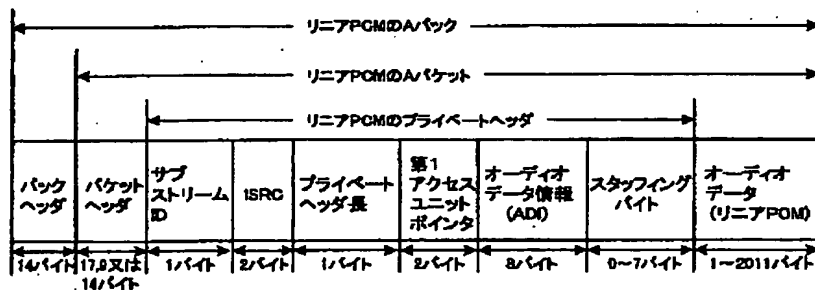 リニアPCMのAパック
リニアPCMのAパケット
リニアPCMのプライベートヘッダ
パック
ヘッダ
パケット
ヘッダ
サブ
ストリーム
ID
ISRC
プライベート
ヘッダ長
第1
アクセス
ユニット
ポインタ
オーディオ
データ情報
(ADI)
スタッフィング
バイト
オーディオ
データ
(リニアPCM)
14バイト
17,9又は
14バイト
1バイト
2バイト
1バイト
2バイト
8バイト
0〜7バイト
1〜2011バイト